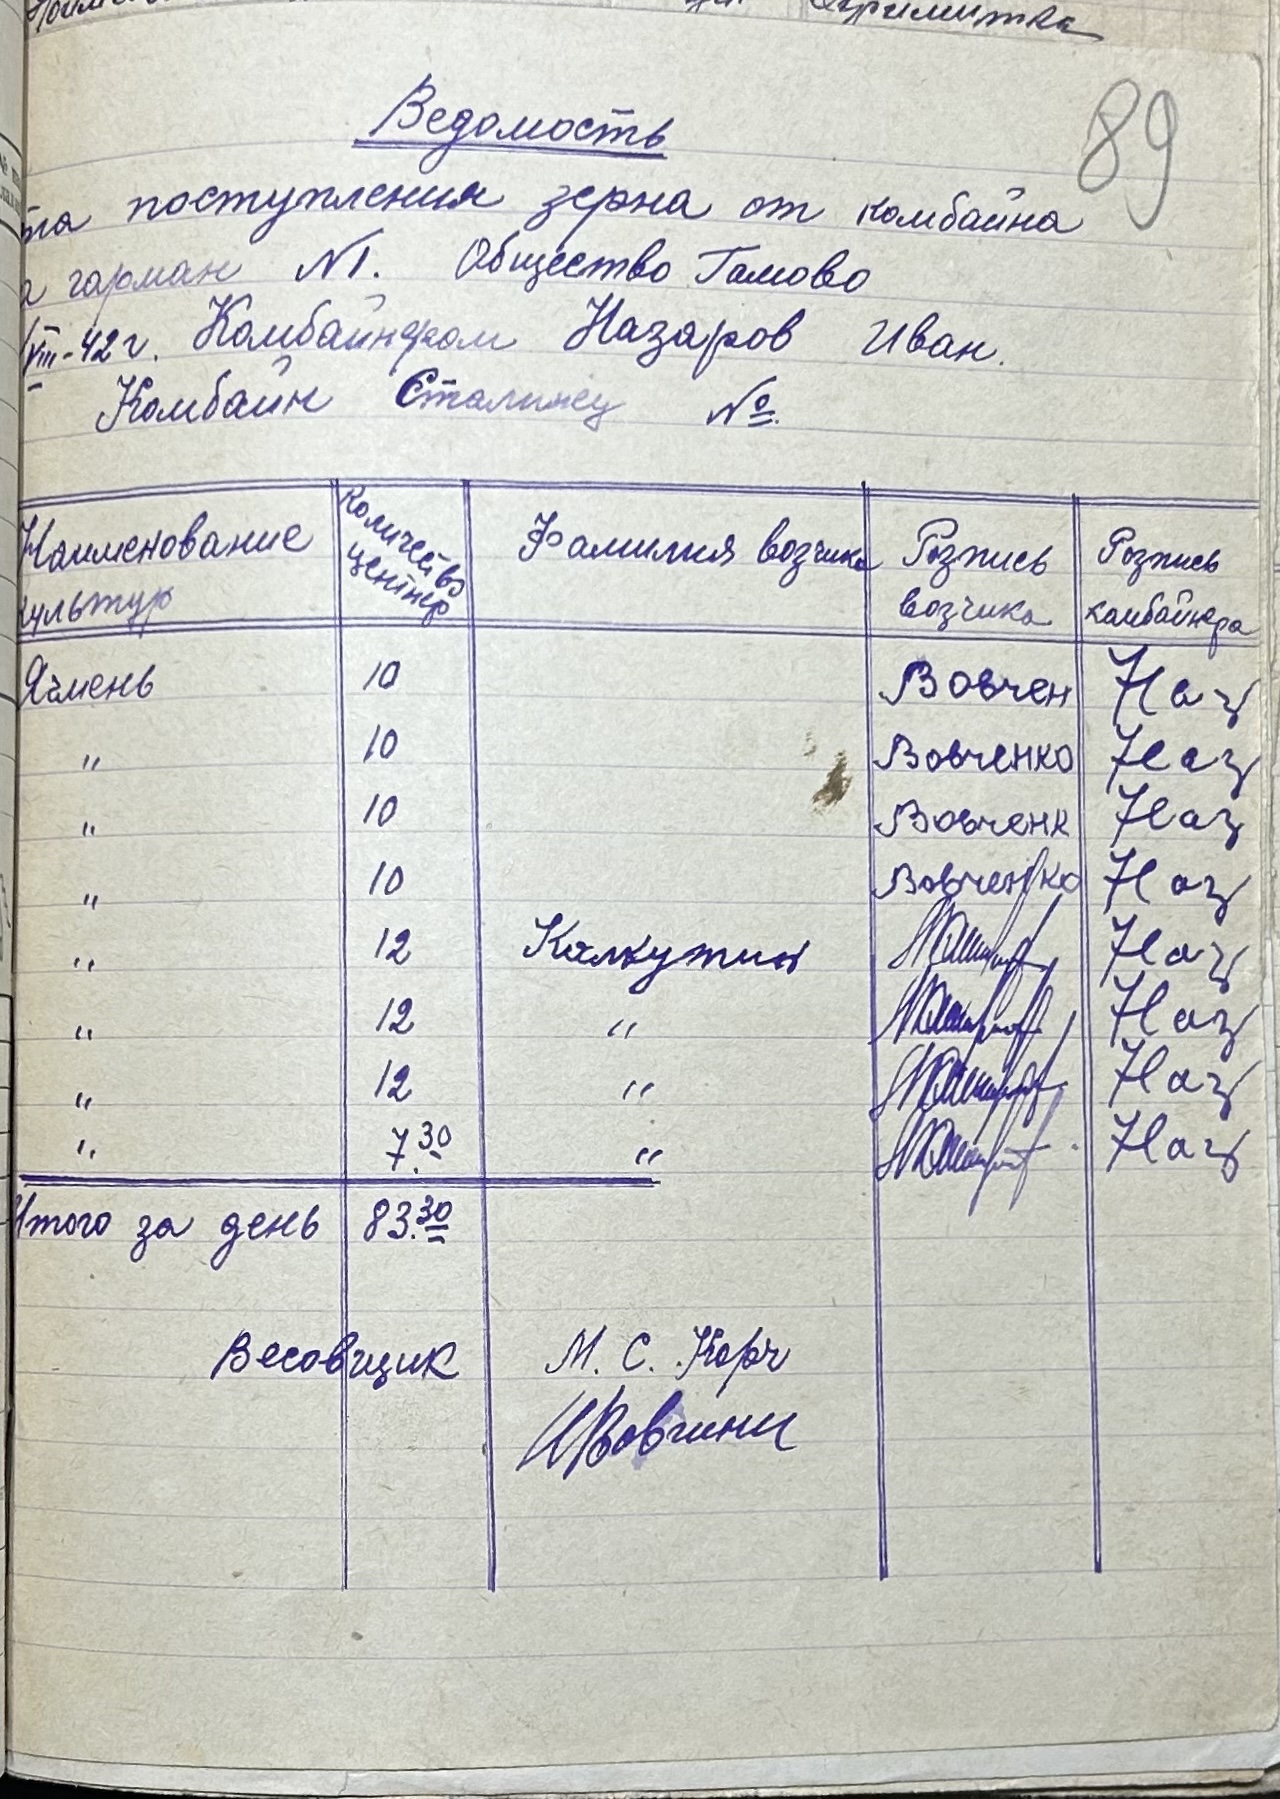 89
Ведомость
та поступления зерна от комбайна
а гарман №1. Общество Гамово
VIII-42 г. Комбайнером Назаров Иван.
Комбайн Сталинец №
Наименование культур | Количество центнер | Фамилия возчика | Розпись возчика | Розпись комбайнера
Ячмень 10 Вовчен Наз
" 10 Вовченко Наз
" 10 Вовченк Наз
" 10 Вовченко Наз
" 12 Калкутин Наз
" 12 " Наз
" 12 " Наз
" 7.30 " Наз
Итого за день 83.30
Весовщик М. С. Корч